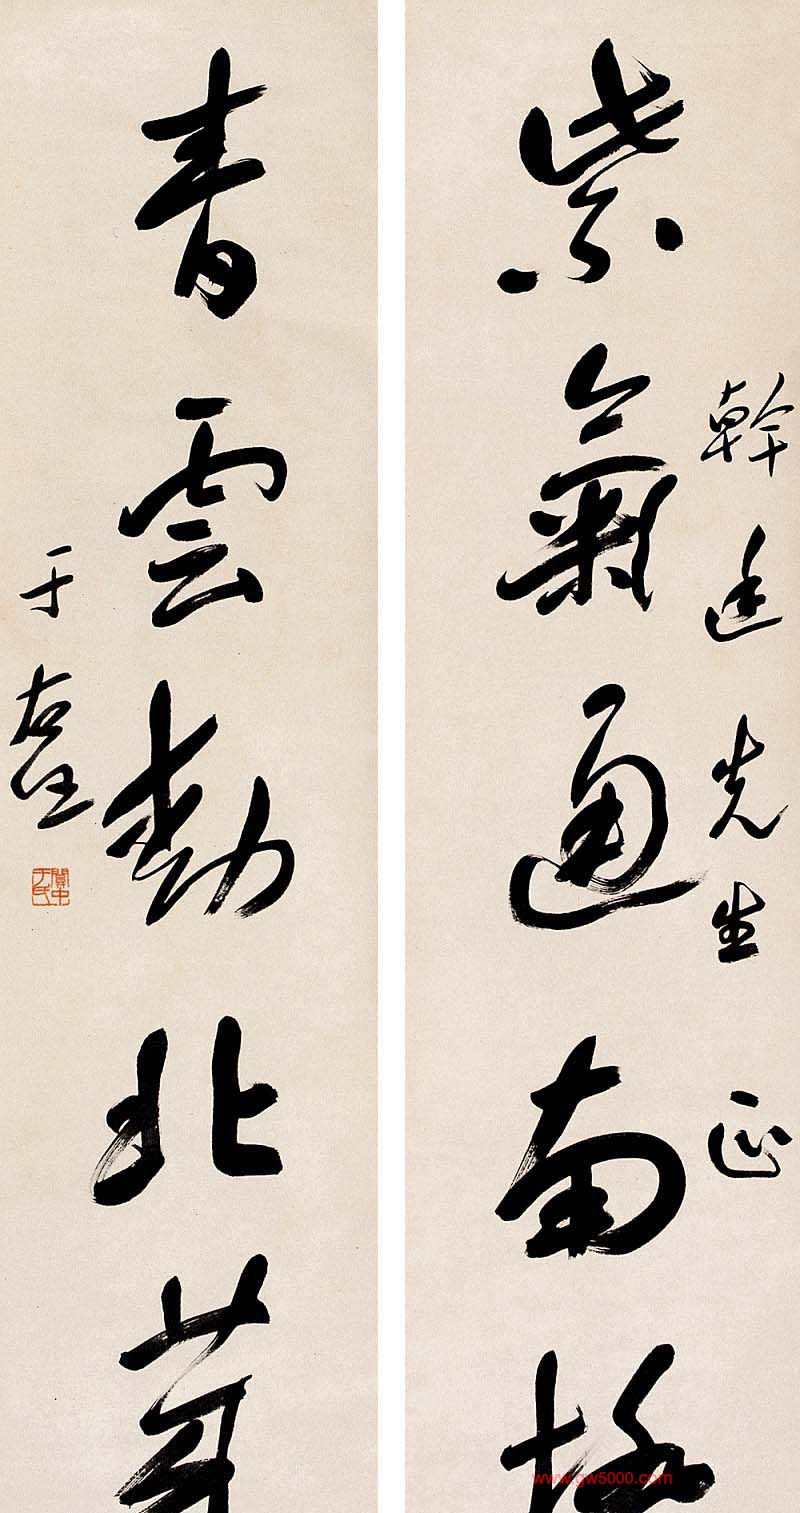 幹廷先生 正
紫氣通南極
青雲動北
于右任
關中于氏
www.gw5000.com